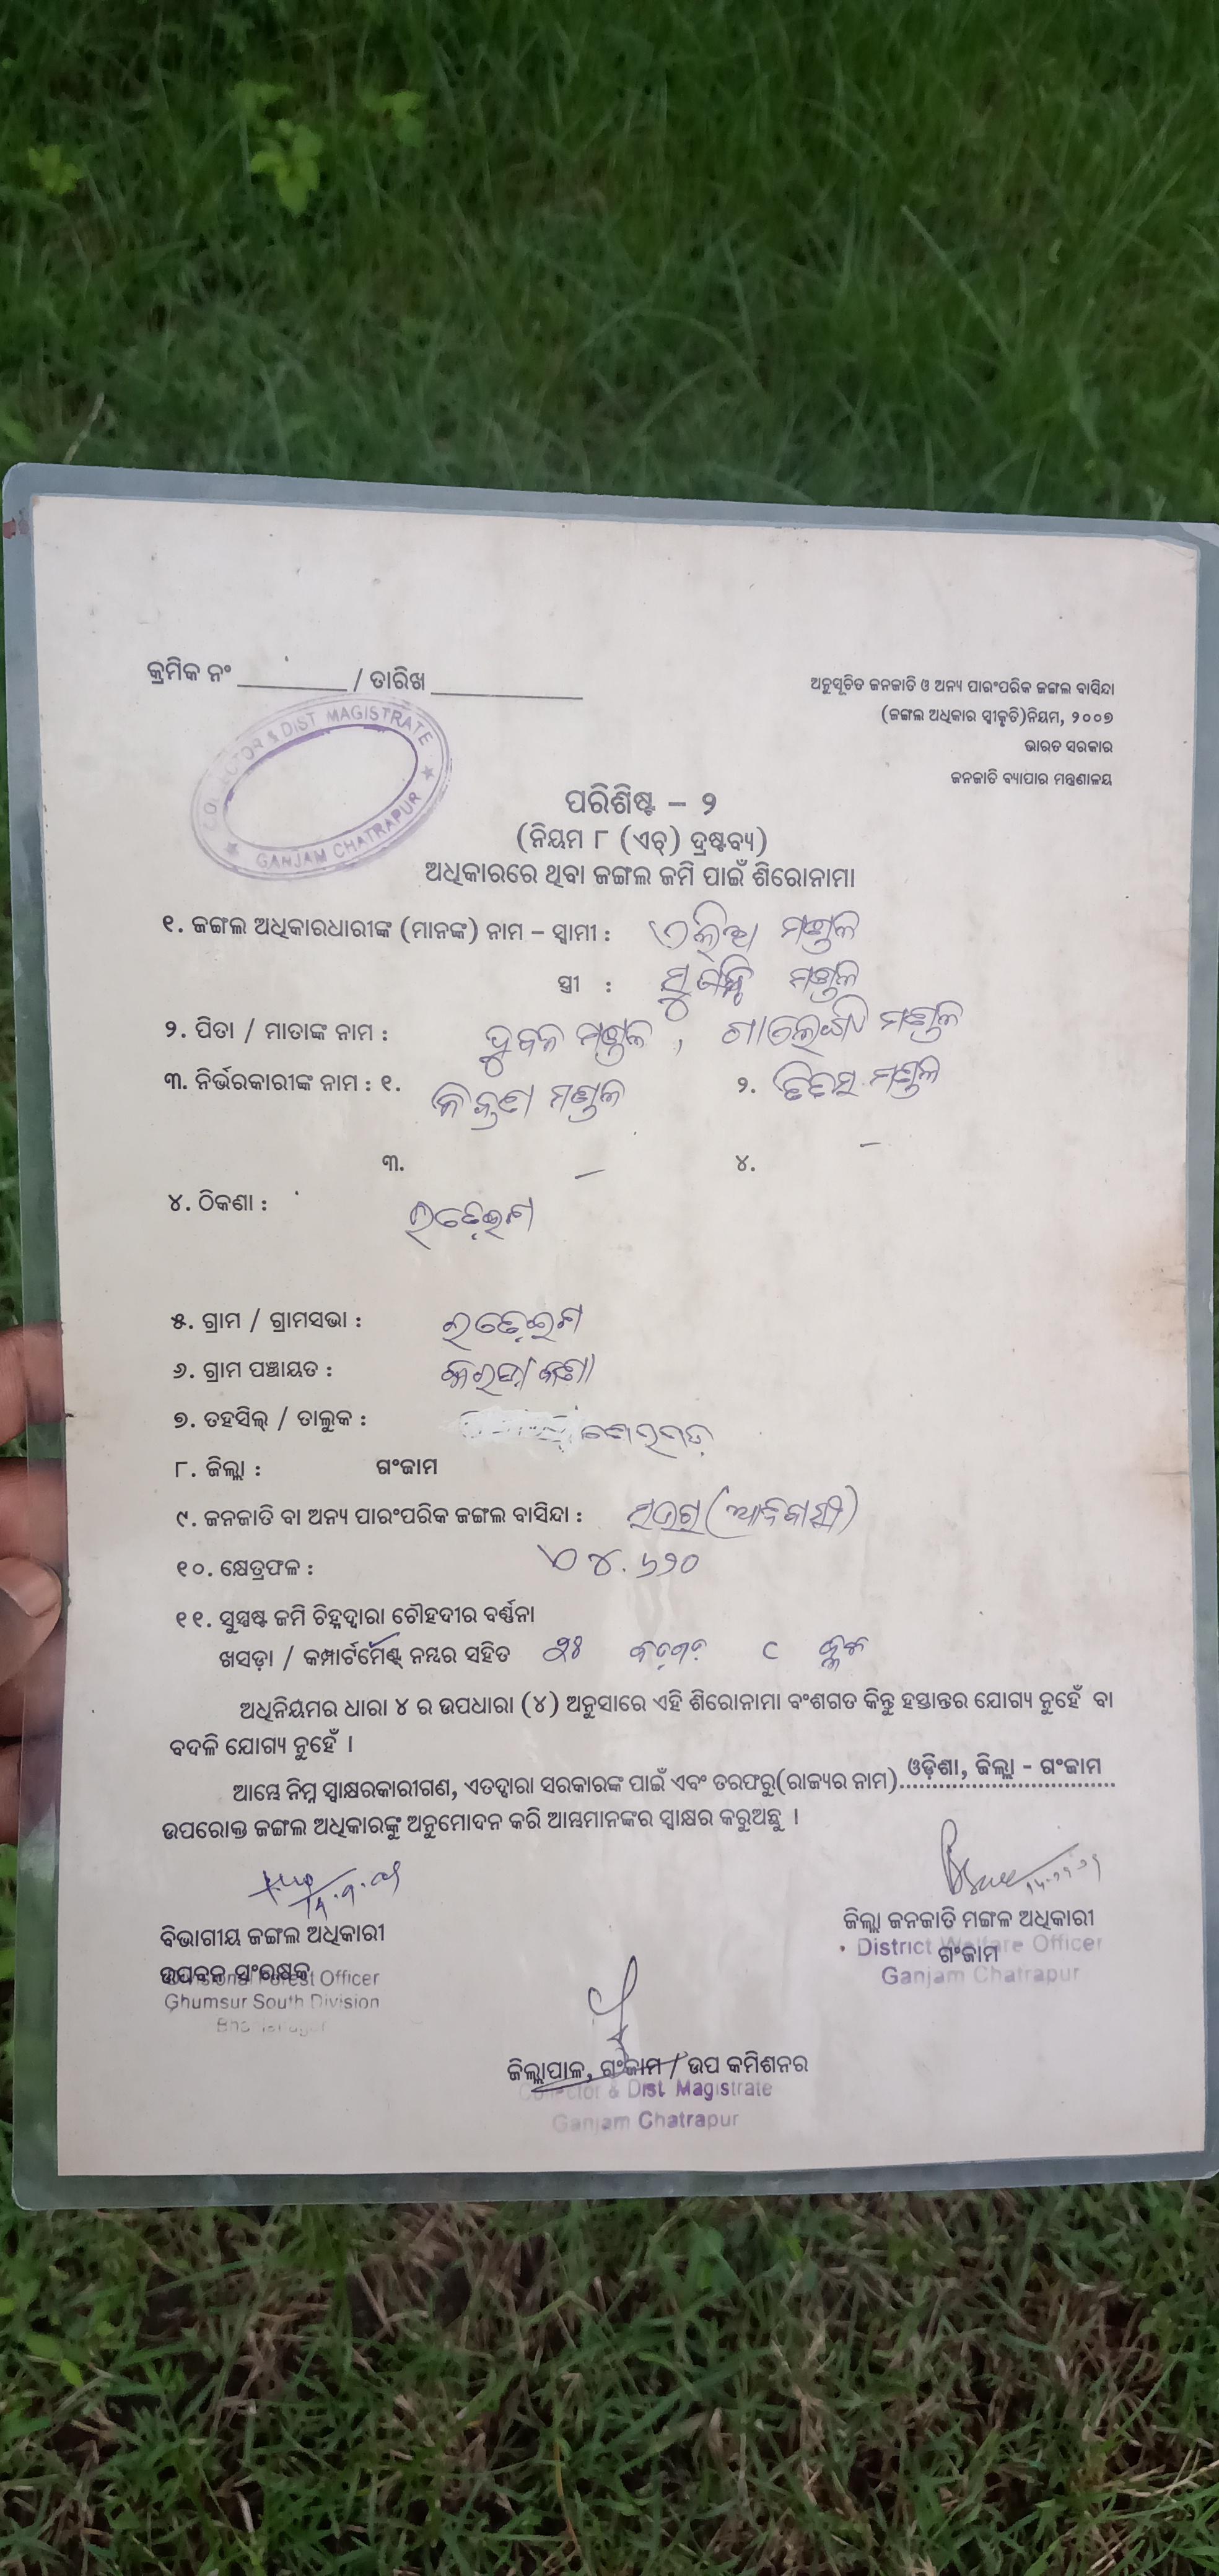 କ୍ରମିକ ନଂ ________ / ତାରିଖ ____________
ଅନୁସୂଚିତ ଜନଜାତି ଓ ଅନ୍ୟ ପାରଂପରିକ ଜଙ୍ଗଲ ବାସିନ୍ଦା
(ଜଙ୍ଗଲ ଅଧିକାର ସ୍ୱୀକୃତି)ନିୟମ, ୨୦୦୭
ଭାରତ ସରକାର
ଜନଜାତି ବ୍ୟାପାର ମନ୍ତ୍ରଣାଳୟ
COLLECTOR & DIST MAGISTRATE
★ GANJAM CHATRAPUR ★
ପରିଶିଷ୍ଟ – ୨
(ନିୟମ ୮ (ଏଚ୍) ଦ୍ରଷ୍ଟବ୍ୟ)
ଅଧିକାରରେ ଥିବା ଜଙ୍ଗଲ ଜମି ପାଇଁ ଶିରୋନାମା
୧. ଜଙ୍ଗଲ ଅଧିକାରଧାରୀଙ୍କ (ମାନଙ୍କ) ନାମ – ସ୍ୱାମୀ : ମଣ୍ଡଳ
ସ୍ତ୍ରୀ : ମଣ୍ଡଳ
୨. ପିତା / ମାତାଙ୍କ ନାମ : ମଣ୍ଡଳ , ମଣ୍ଡଳ
୩. ନିର୍ଭରକାରୀଙ୍କ ନାମ : ୧. ମଣ୍ଡଳ ୨. ମଣ୍ଡଳ
୩. – ୪. –
୪. ଠିକଣା :
୫. ଗ୍ରାମ / ଗ୍ରାମସଭା :
୬. ଗ୍ରାମ ପଞ୍ଚାୟତ :
୭. ତହସିଲ୍ / ତାଲୁକ :
୮. ଜିଲ୍ଲା : ଗଂଜାମ
୯. ଜନଜାତି ବା ଅନ୍ୟ ପାରଂପରିକ ଜଙ୍ଗଲ ବାସିନ୍ଦା : (ଆଦିବାସୀ)
୧୦. କ୍ଷେତ୍ରଫଳ : ଏ ୪.୬୨୦
୧୧. ସୁସ୍ପଷ୍ଟ ଜମି ଚିହ୍ନଦ୍ୱାରା ଚୌହଦୀର ବର୍ଣ୍ଣନା
ଖସଡ଼ା / କମ୍ପାର୍ଟମେଣ୍ଟ୍ ନମ୍ୱର ସହିତ
ଅଧିନିୟମର ଧାରା ୪ ର ଉପଧାରା (୪) ଅନୁସାରେ ଏହି ଶିରୋନାମା ବଂଶଗତ କିନ୍ତୁ ହସ୍ତାନ୍ତର ଯୋଗ୍ୟ ନୁହେଁ ବା
ବଦଳି ଯୋଗ୍ୟ ନୁହେଁ ।
ଆମ୍ଭେ ନିମ୍ନ ସ୍ୱାକ୍ଷରକାରୀଗଣ, ଏତଦ୍ୱାରା ସରକାରଙ୍କ ପାଇଁ ଏବଂ ତରଫରୁ(ରାଜ୍ୟର ନାମ) ଓଡ଼ିଶା, ଜିଲ୍ଲା - ଗଂଜାମ
ଉପରୋକ୍ତ ଜଙ୍ଗଲ ଅଧିକାରଙ୍କୁ ଅନୁମୋଦନ କରି ଆମ୍ଭମାନଙ୍କର ସ୍ୱାକ୍ଷର କରୁଅଛୁ ।
ବିଭାଗୀୟ ଜଙ୍ଗଲ ଅଧିକାରୀ
ଉପବନ ସଂରକ୍ଷକ
Divisional Forest Officer
Ghumsur South Division
ଜିଲ୍ଲା କନଜାତି ମଙ୍ଗଳ ଅଧିକାରୀ
ଗଂଜାମ
District Welfare Officer
Ganjam Chatrapur
ଜିଲ୍ଲାପାଳ, ଗଂଜାମ / ଉପ କମିଶନର
Collector & Dist. Magistrate
Ganjam Chatrapur